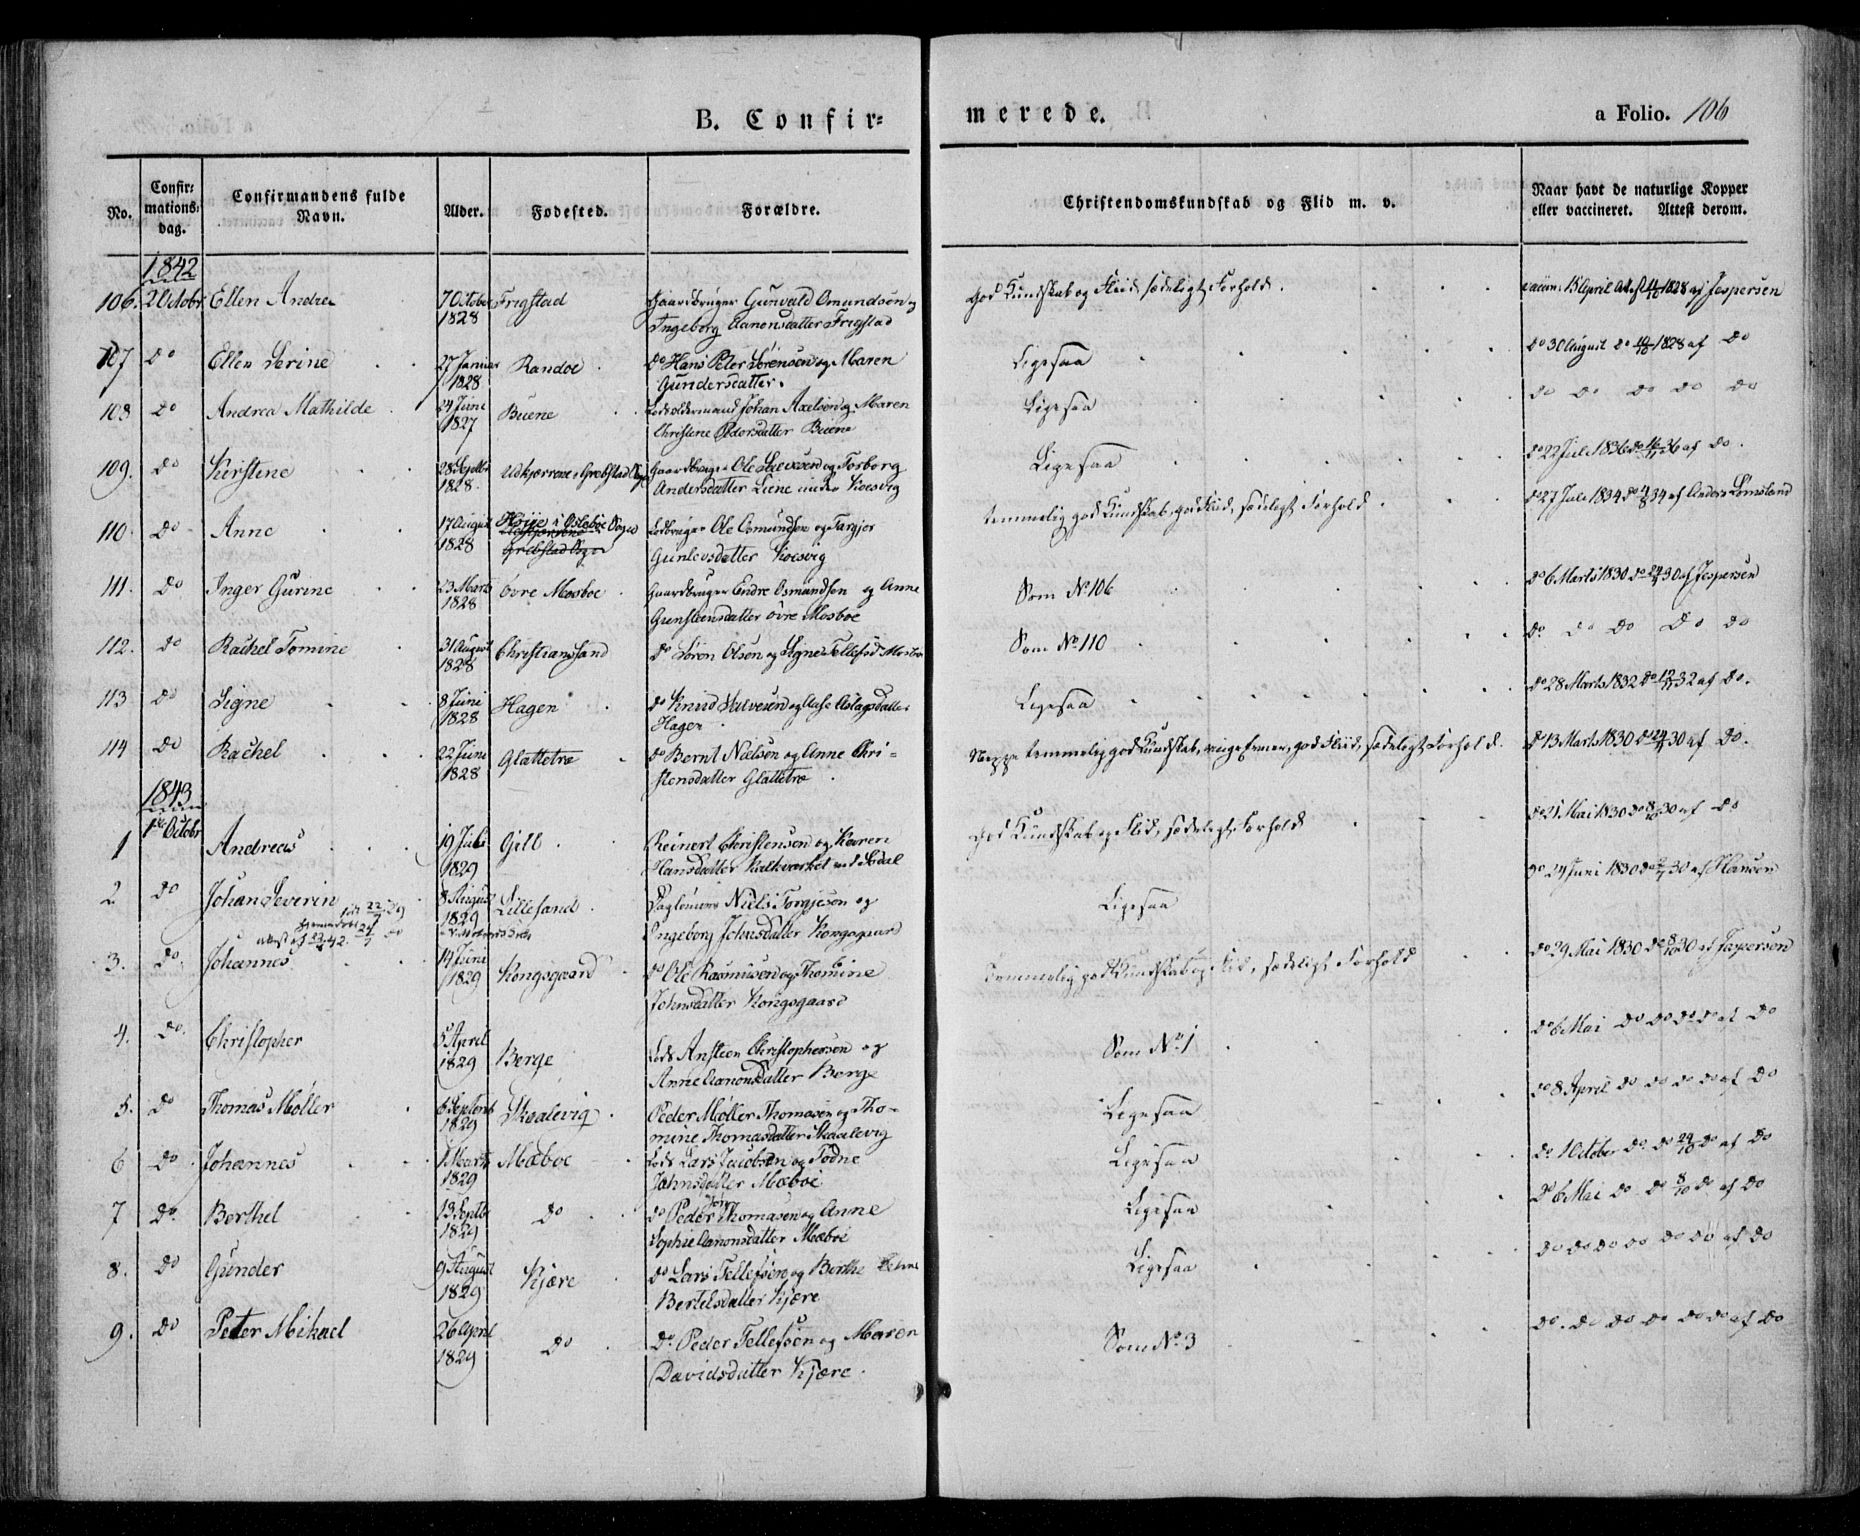 B. Confir= merede. a Folio. 106
No. Confir=mations=dag. Confirmandens fulde Navn. Alder. Fødested. Forældre. Christendomskundskab og Flid m. v. Naar havt de naturlige Kopper eller vaccineret. Attest derom.
1842
106. 2 Octobr Ellen Andrea 7 October 1828 Frigstad Gaardbruger Gunvald Omundsen og Ingeborg Aanonsdatter Frigstad God Kundskab og Fliid, sædeligt Forhold. vaccin: 15 April Attest 11/10 1828 af Jespersen
107 do Ellen Serine 27 Januar 1828 Randøe do Hans Peter Sørensen og Maren Gundersdatter. Ligesaa do 30 August do 1828 af do
108 do Andrea Mathilde 24 Juni 1827 Buene Lodsoldermand Johan Axelsen og Maren Christine Pedersdatter Buene Ligesaa do do do do do
109. do Kirstine 28 Septbr 1828. Udkjærrene i Grebstad Sogn Gaardbruger Ole Salvesen og Torborg Andersdatter Liene under Kosvig Ligesaa do 22 Juli 1836 do 36 af do.
110. do Anne 17 August 1828 Høije i Osleboe Sogn Grebstad Sogn Lodbruger Ole Osmundsen og Targjer Gunlevsdatter Kosvig temmelig god Kundskab, god Fliid, sædeligt Forhold. do 27 Juli 1834 do 34 af Anders Lomsland
111. do Inger Gurine 23 Marts 1828 øvre Mosboe Gaardbruger Endre Osmundsen og Anne Gunsteensdatter øvre Mosboe Som No 106 do 6 Marts 1830 do 30 af Jespersen
112. do Rachel Tomine 31 August 1828 Christianssand do Søren Olsen og Signe Tellefsd Mosboe Som No 110 do do do do do
113 do Signe 8 Juni 1828 Hagen do Knud Salvesen og Aase Aslagsdatter Hagen Ligesaa do 28 Marts 1832 do 32 af do.
114 do Rachel 22 Juni 1828 Glattetræ do Bernt Nielsen og Anne Chri-stensdatter Glattetræ Neppe temmelig god Kundskab, ringe Evner, god Fliid, sædeligt Forhold. do 13 Marts 1830 do 30 af do.
1843
1 1ste Octobr Andreas 19 Juli 1829 Gill Reinert Christensen og Karen Hansdatter Kalkværket ved God Kundskab og Fliid, sædeligt Forhold do 21 Mai 1830 do 30 af do
2 do Johan Severin 8 August 1829 Lillesand Daglønner Niels Torgjesen og Ingeborg Johnsdatter Kongsgaard Ligesaa do 24 Juni 1830 do 30 af Hansen
3. do Johannes 14 Juni 1829 Kongsgaard do Ole Rasmusen og Thomine Johnsdatter Kongsgaard Temmelig god Kundskab og Fliid, sædeligt Forhold do 29 Mai 1830 do 8/10 30 af Jespersen
4. do Christopher 5 April 1829 Berge Lods Ansteen Christophersen og Anne Aanonsdatter Berge Som No 1 do 6 Mai do do do do af do
5. do Thomas Møller 6 Septemb 1829 Skaalevig Peder Møller Thomasen og Tho-mine Thomasdatter Skaalevig Ligesaa do 8 April do do do do af do
6 do Johannes 1 Marts 1829 Mæboe Lods Lars Jacobsen og Todne Jahnsdatter Mæboe Ligesaa do 1 October do do do af do
7 do Berthel 13 Septbr 1829 do do Peder Thomasen og Anne Sophie Aanonsdatter Mæboe Ligesaa do 6 Mai do do 8/10 do af do
8. do Gunder 9 August 1829 Kjære do Lars Tellefsen og Berthe Bertelsdatter Kjære Ligesaa do do do do do do af do
9. do Peter Mikael 26 April 1829 do do Peder Tellefsen og Maren Davidsdatter Kjære. Som No 3 do. do do do do do af do